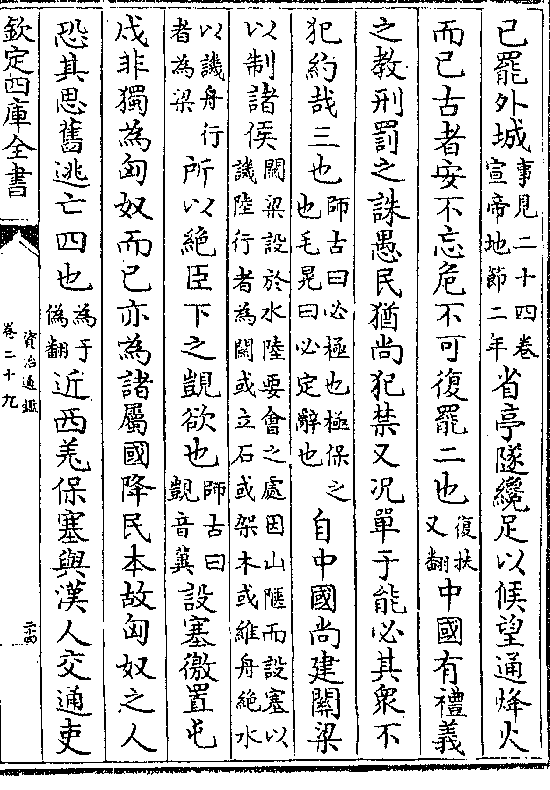 已罷外城事見二十四卷宣帝地節二年省亭隧纔足以候望通烽火
而已古者安不忘危不可復罷二也復扶又翻中國有禮義
之教刑罰之誅愚民猶尚犯禁又况單于能必其衆不
犯約哉三也師古曰必極也極保之也毛晃曰必定辭也自中國尚建關梁
以制諸侯關梁設於水陸要會之處因山陿而設塞以譏陸行者為關或立石或架木或維舟絶水
以譏舟行者為梁所以絶臣下之覬欲也師古曰覬音冀設塞徼置屯
戍非獨為匈奴而已亦為諸屬國降民本故匈奴之人
恐其思舊逃亡四也為于偽翻近西羌保塞與漢人交通吏
欽定四庫全書
資治通鑑
卷二十九
二十四